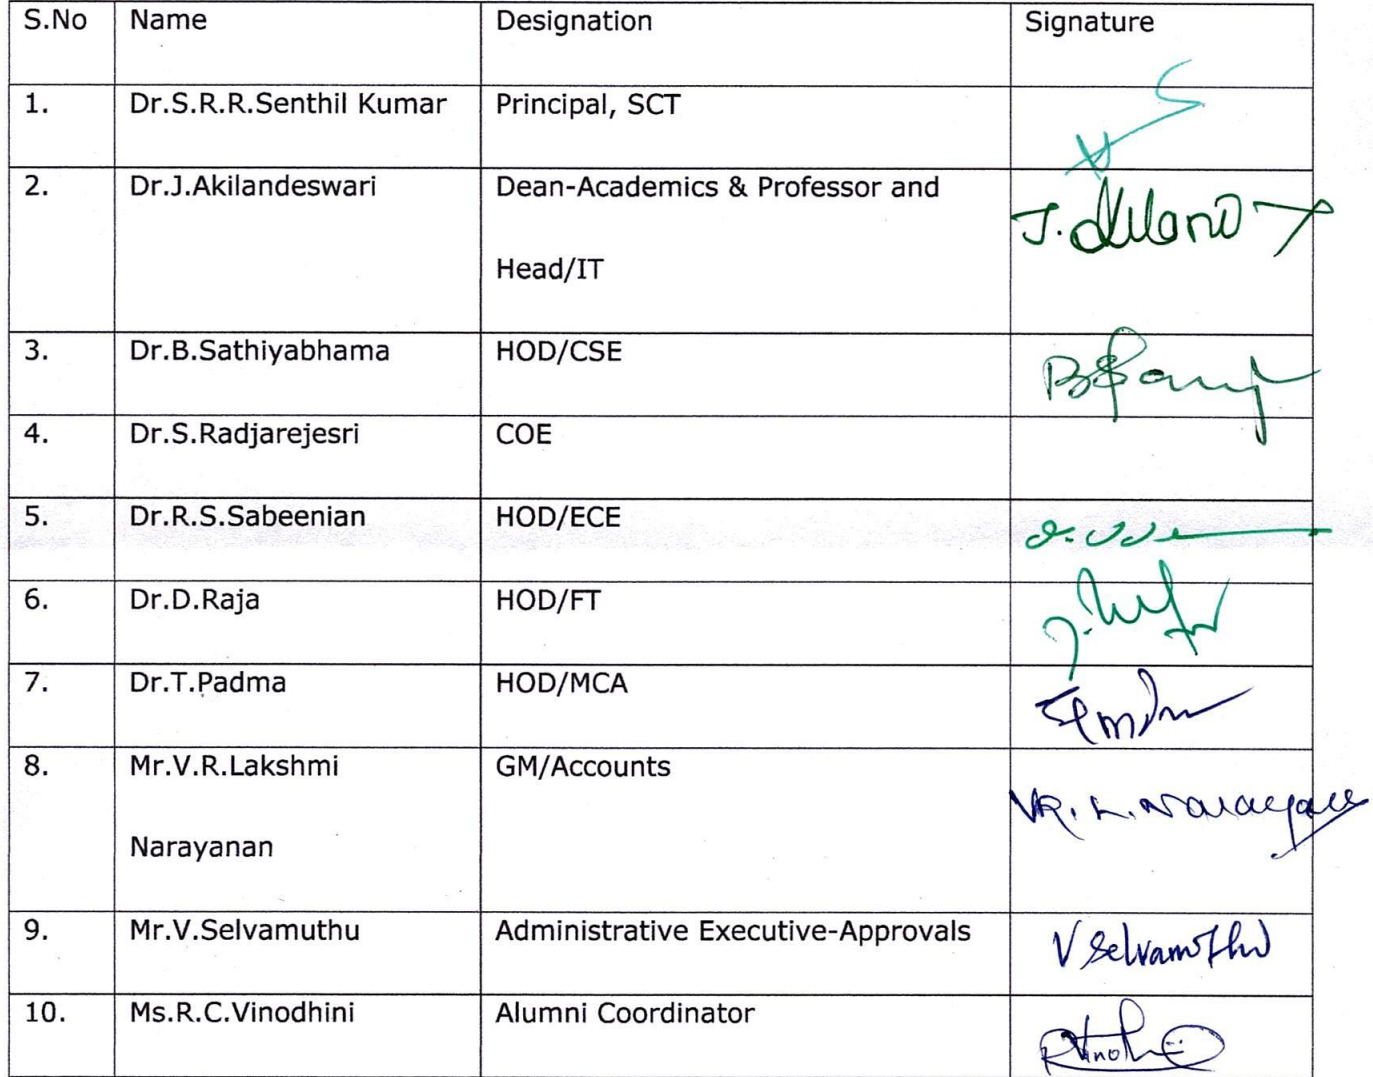 S.No Name Designation Signature
1. Dr.S.R.R.Senthil Kumar Principal, SCT
2. Dr.J.Akilandeswari Dean-Academics & Professor and
Head/IT
3. Dr.B.Sathiyabhama HOD/CSE
4. Dr.S.Radjarejesri COE
5. Dr.R.S.Sabeenian HOD/ECE
6. Dr.D.Raja HOD/FT
7. Dr.T.Padma HOD/MCA
8. Mr.V.R.Lakshmi GM/Accounts
Narayanan
9. Mr.V.Selvamuthu Administrative Executive-Approvals V Selvamuthu
10. Ms.R.C.Vinodhini Alumni Coordinator